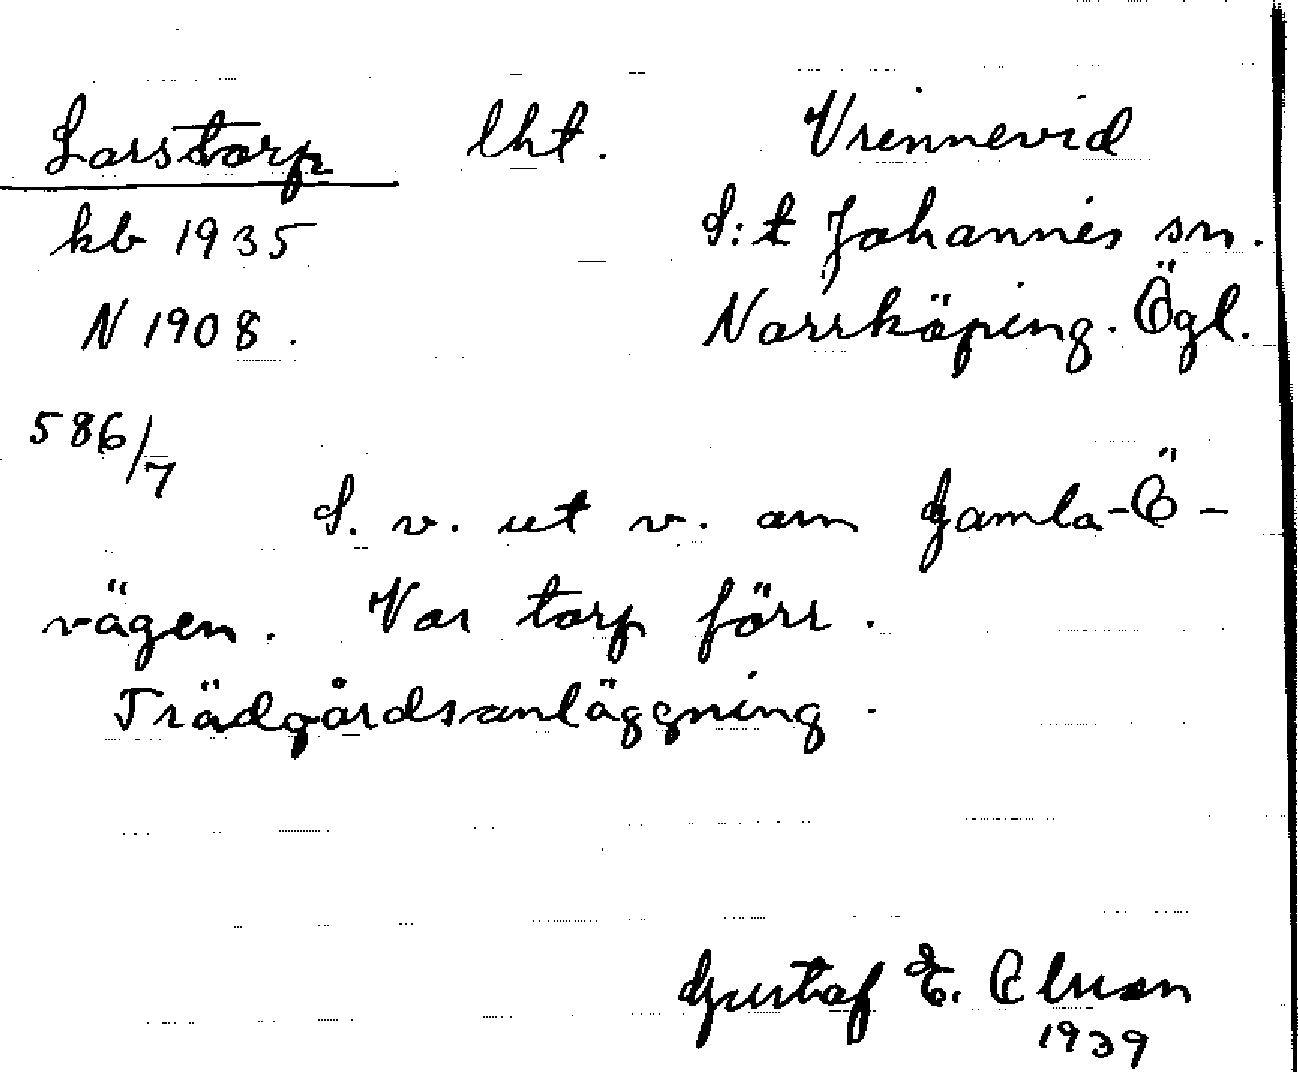 Larstorp lht. Vrinnevid
kb 1935 S:t Johannes sn.
N 1908. Norrköping. Ögl.
586/7
S. v. ut v. om Gamla-Ö-
vägen. Var torp förr.
Trädgårdsanläggning.
Gustaf E.
1939